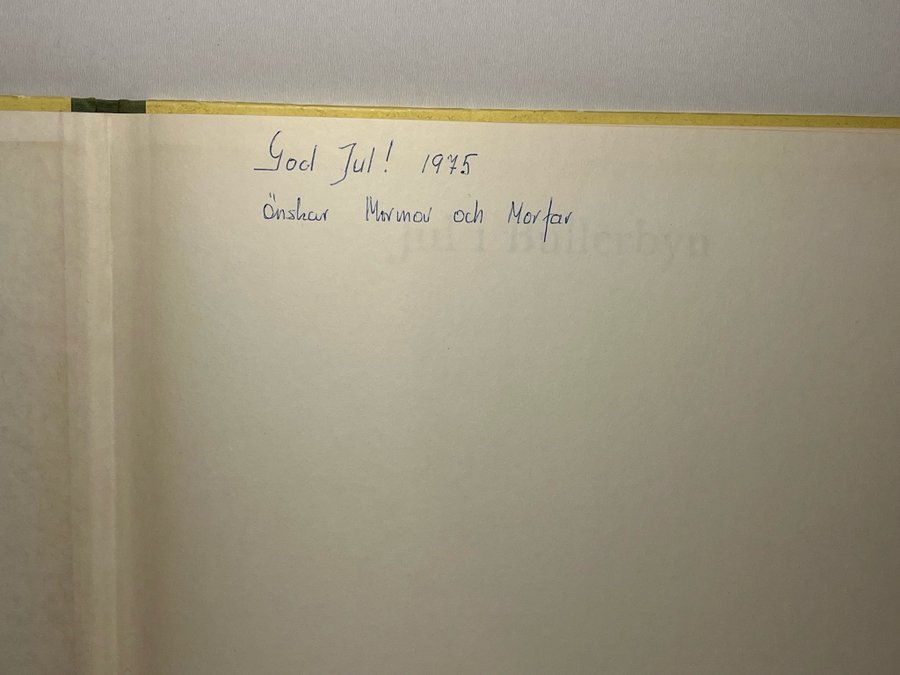 God Jul! 1975
Önskar Mormor och Morfar
Jul i Bullerbyn